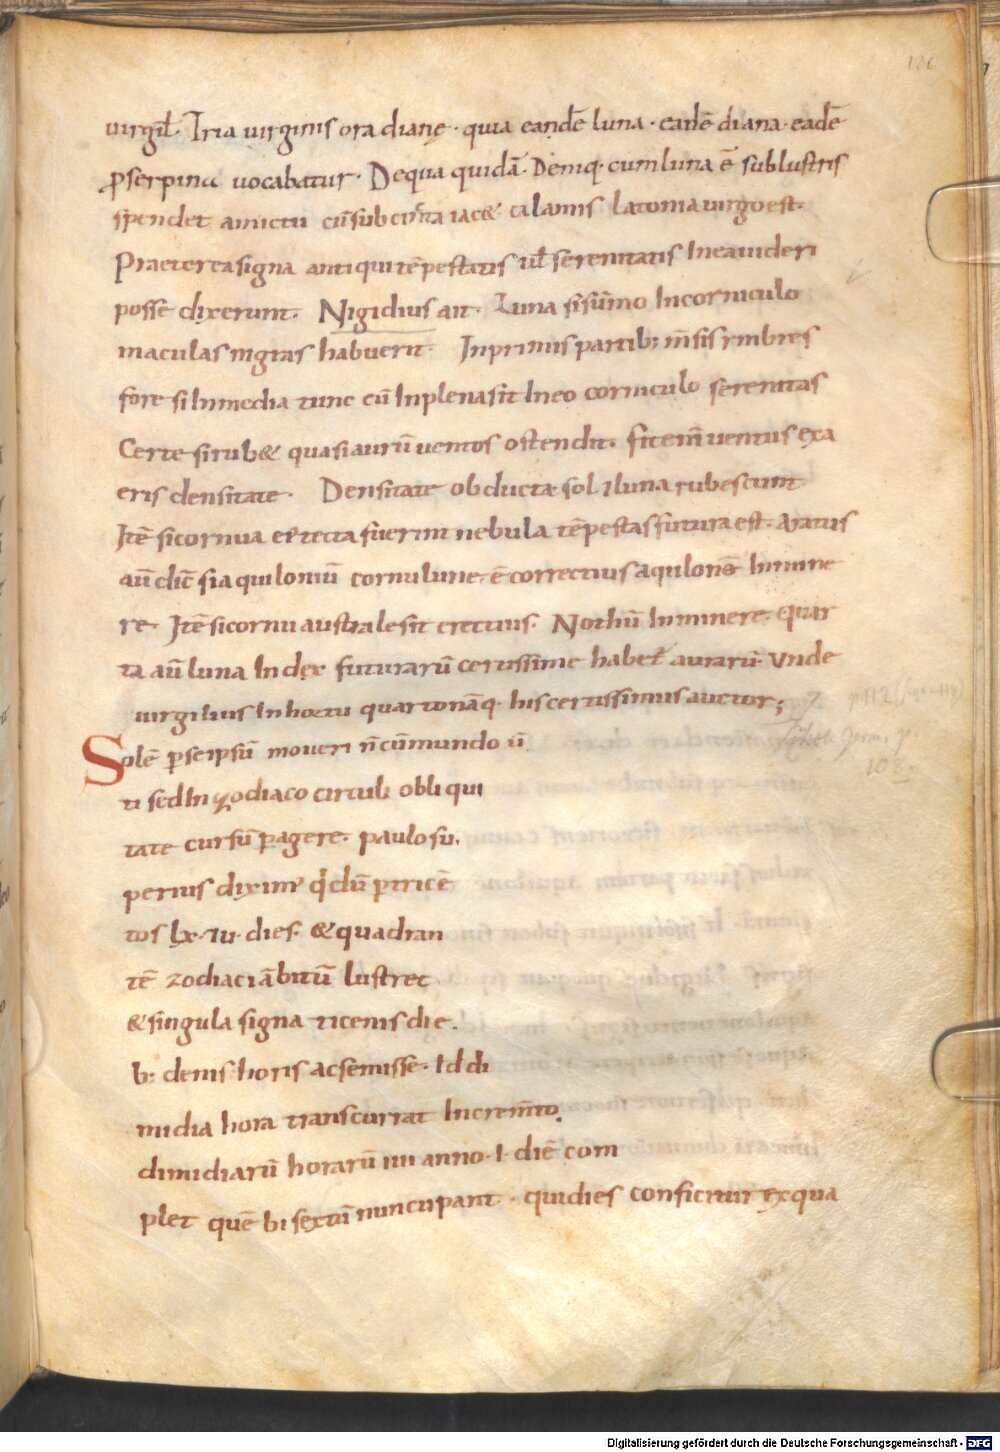 120
uirgił· Tria uirginis ora dianę· quia eandē luna· eadē diana· eadē
ꝓserpina uocabatur· Dequa quidā· Deniq· cumluna ē sublustris
spendet amictu cū subcincta iac& calamis latonia uirgo est·
Praeterea signa antiqui tēpestatis uł serenitatis Ineauideri
posse dixerunt· Nigidius ait· Luna si sūmo Incorniculo
maculas nigras habuerit· Inprimis partib; m̄sis ymbres
fore si Inmedia tunc cū Inplena sit Ineo corniculo serenitas
Certe si rub& quasi aurū uentos ostendit· fit enī uentus exa
eris densitate· Densitate obducta sol ⁊luna rubescunt
Itē si cornua ei᾽ tecta fuerint nebula tēpestas futura est· Aratus
aū dic̄ si aquiloniū cornu lune ē correctius aquilonē Inmine
re· Itē si cornu australe sit erectius· Nothū Inminere· quar
ta aū luna Index futurarū certissime habet᾽ aurarū· Vnde
uirgilius Inhortu quartonāq· his certissimus auctor;
Solē ꝑseipsū moueri n̄ cū mundo ū
ti sed In zodiaco circuli obliqui
tate cursū ꝑagere· paulo su·
perius diximꝰ qđ dū ꝑ tricē
tos lx·ıu· dies· & quadran
tē zodiaci ābitū lustret
& singula signa tricenis die·
b; denis horis ac semisse· Id di
midia hora transcurrat Increm̄to
dimidiarū horarū iiii anno· I· diē com
plet quē bisextū nuncupant· qui dies conficitur exqua
Digitalisierung gefördert durch die Deutsche Forschungsgemeinschaft - DFG